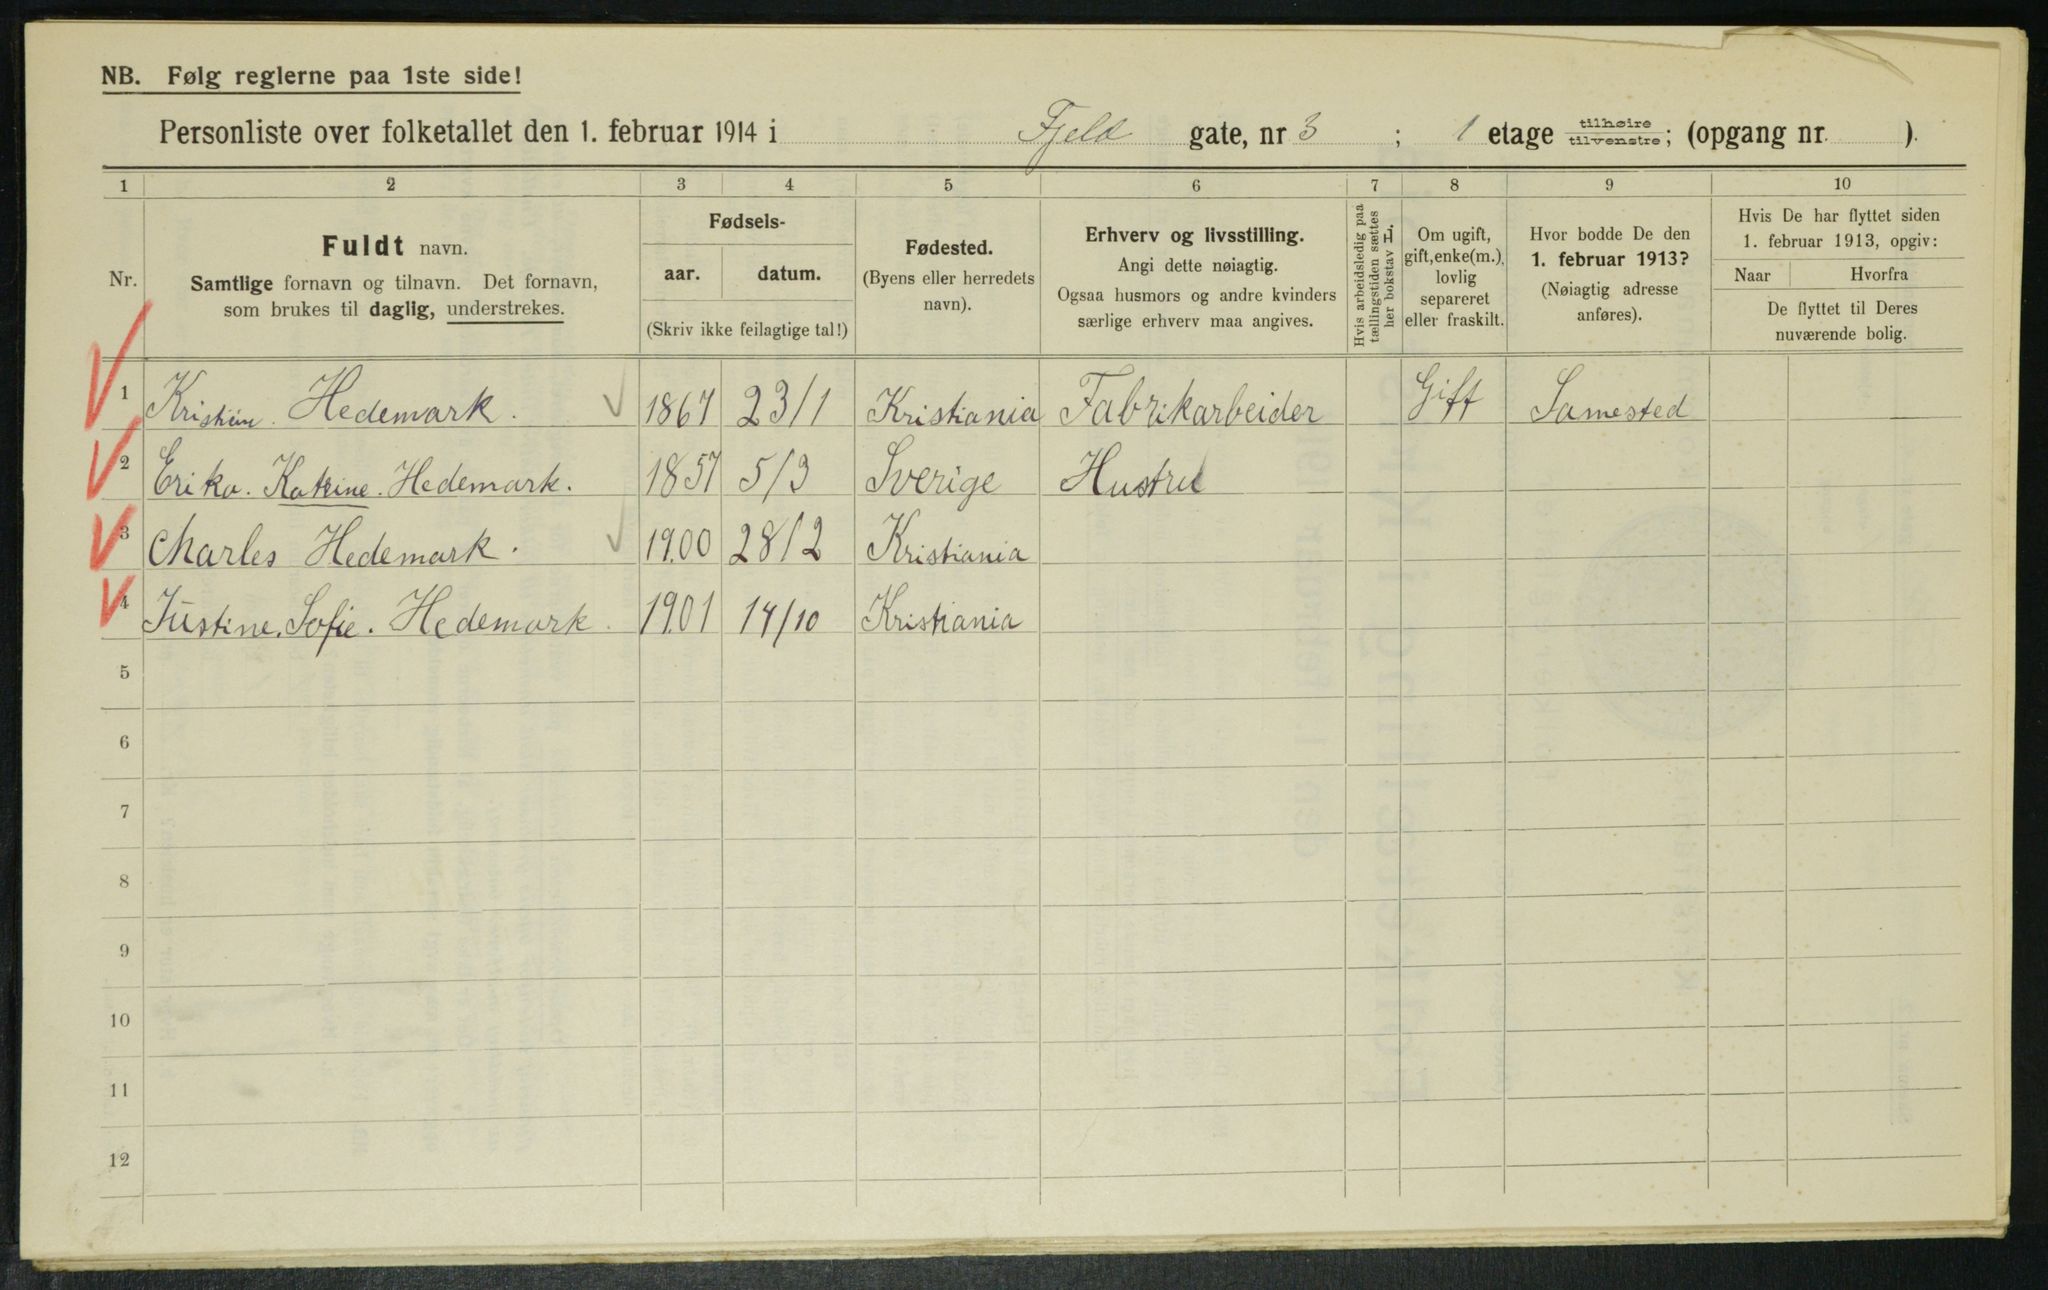 NB. Følg reglerne paa 1ste side!
Personliste over folketallet den 1. februar 1914 i Fjeld gate, nr 3 ; 1 etage tilhøire tilvenstre; (opgang nr. ).
1 2 3 4 5 6 7 8 9 10
Nr.
Fuldt navn.
Samtlige fornavn og tilnavn. Det fornavn,
som brukes til daglig, understrekes.
Fødsels-
aar. datum.
(Skriv ikke feilagtige tal!)
Fødested.
(Byens eller herredets
navn).
Erhverv og livsstilling.
Angi dette nøiagtig.
Ogsaa husmors og andre kvinders
særlige erhverv maa angives.
Hvis arbeidsledig paa
tællingstiden sættes
her bokstav L.
Om ugift,
gift, enke(m.),
lovlig
separeret
eller fraskilt.
Hvor bodde De den
1. februar 1913?
(Nøiagtig adresse
anføres).
Hvis De har flyttet siden
1. februar 1913, opgiv:
Naar Hvorfra
De flyttet til Deres
nuværende bolig.
1 Kristian. Hedemark. 1867 23/1 Kristiania Fabrikarbeider Gift Samested
2 Erika. Katrine. Hedemark. 1857 5/3 Sverige Hustru
3 Charles Hedemark. 19.00 28/2 Kristiania
4 Justine. Sofie. Hedemark. 19.01 14/10 Kristiania
5
6
7
8
9
10
11
12